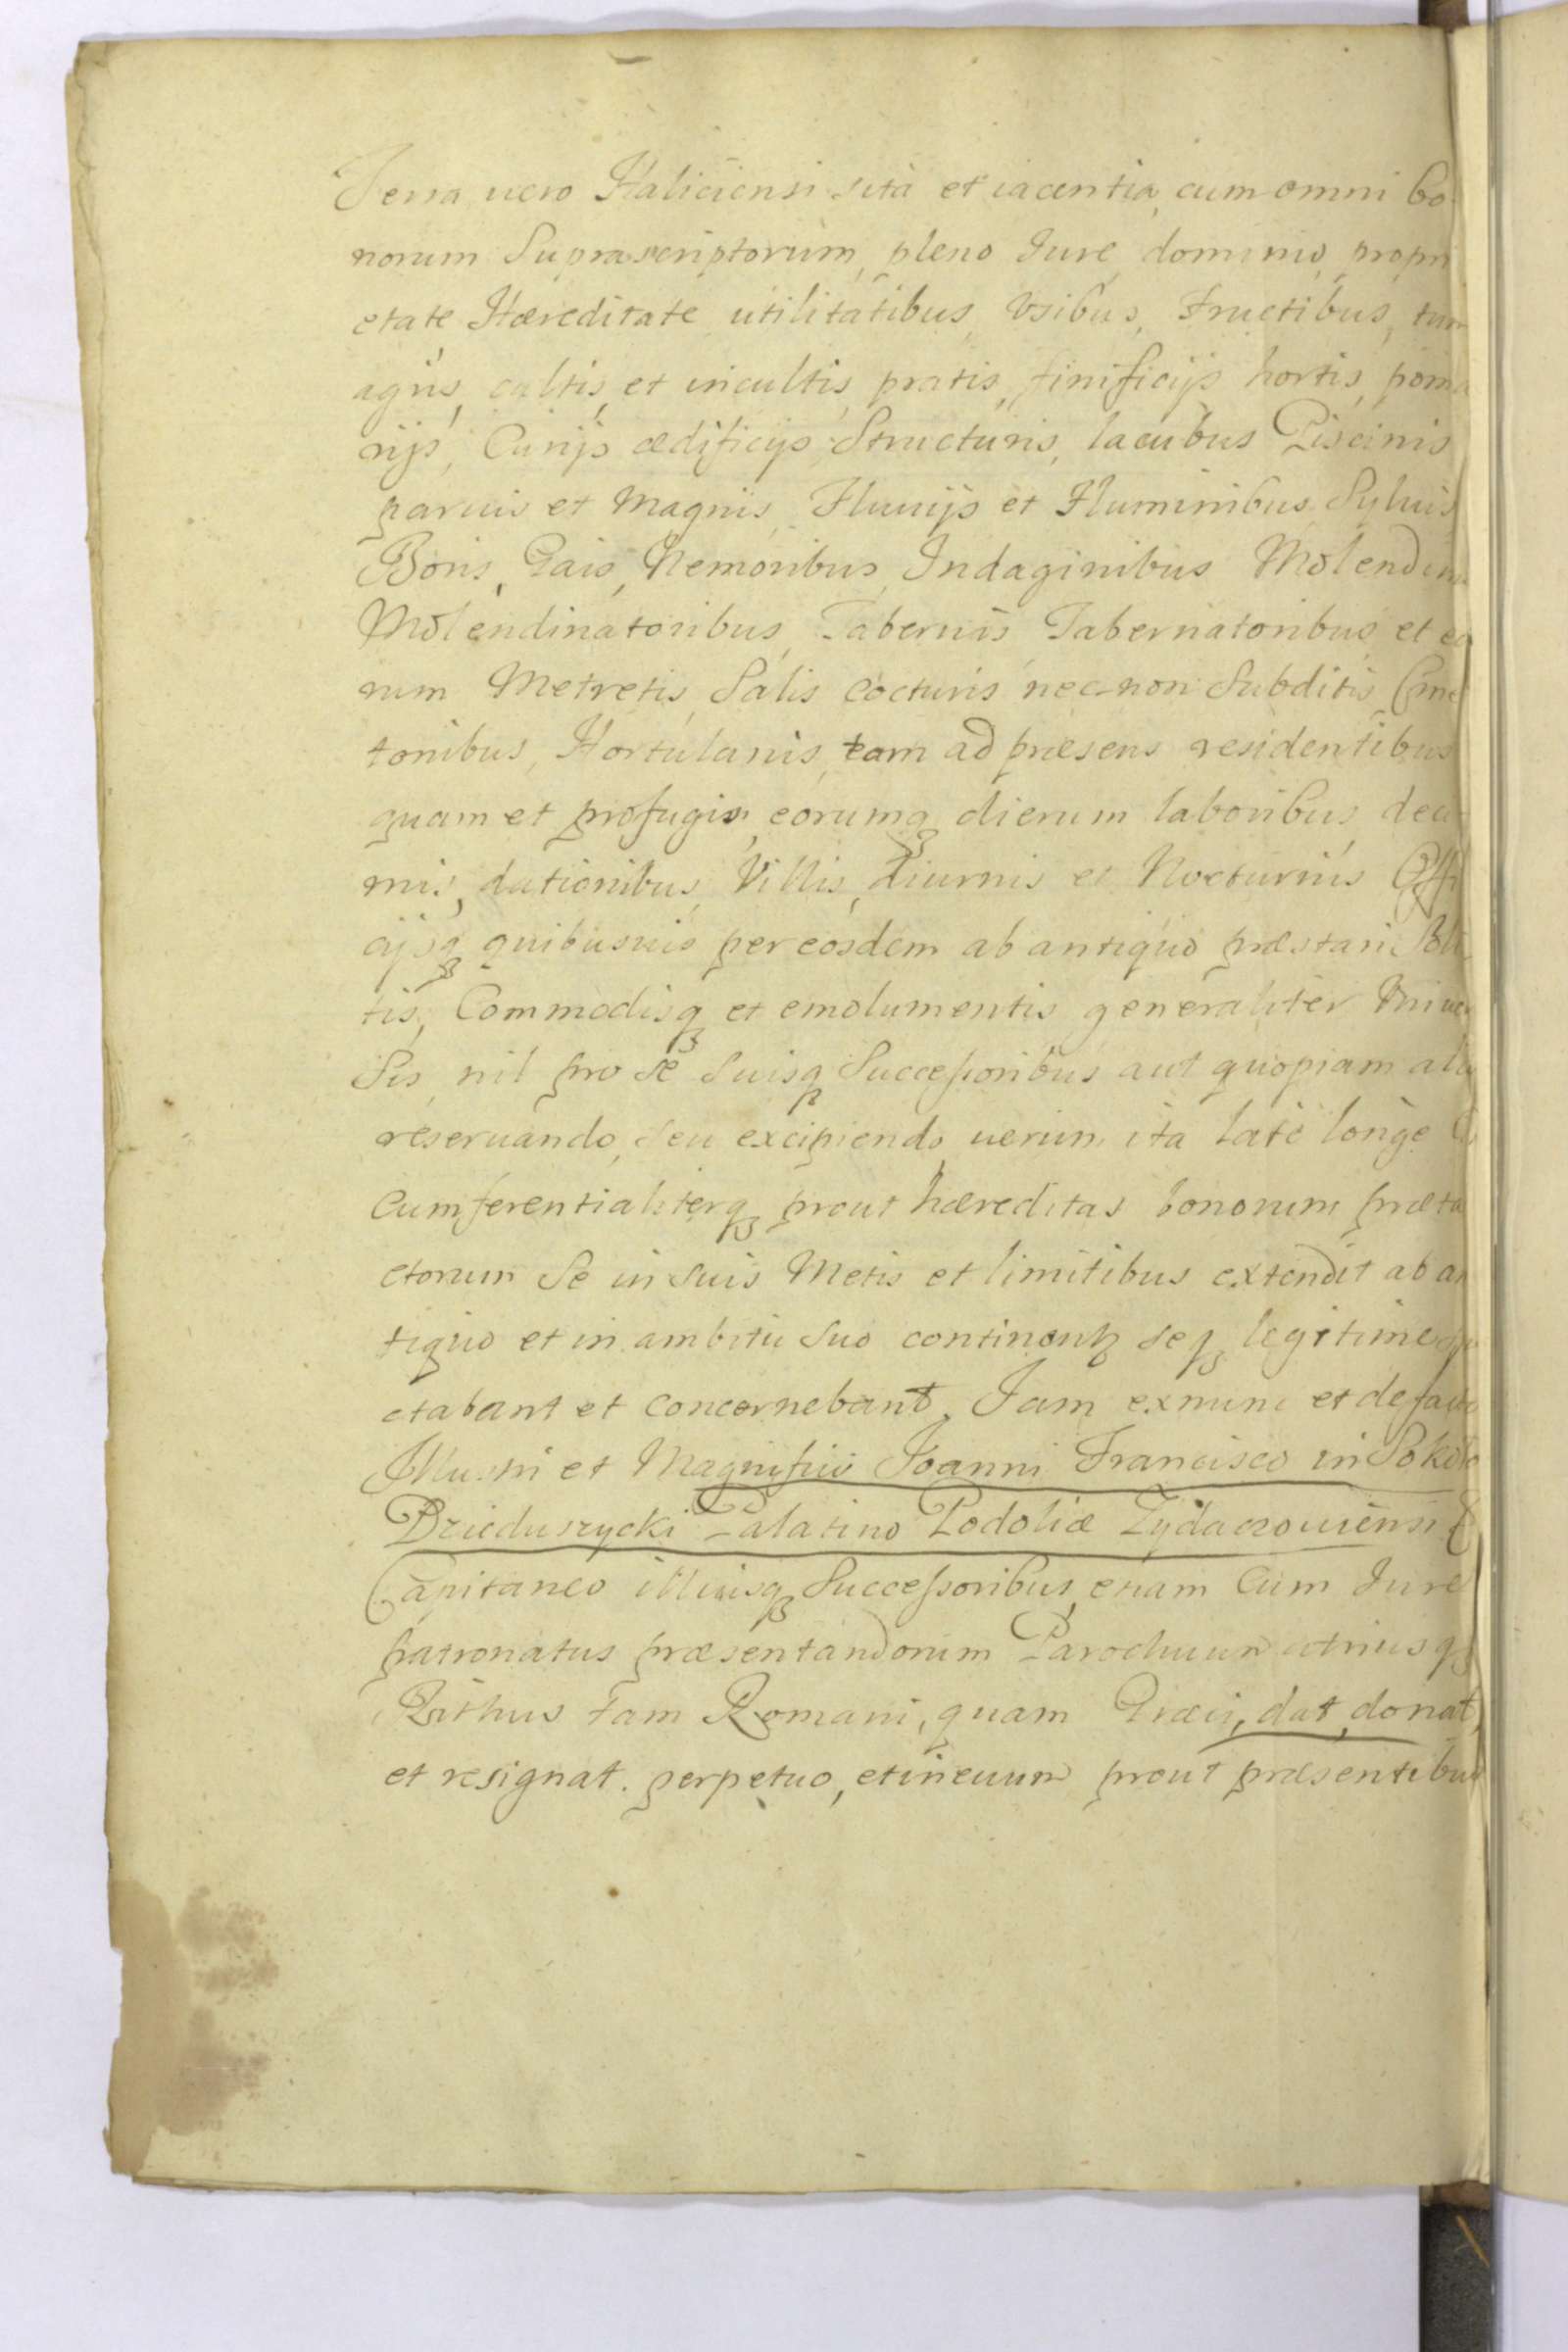 Terra uero Haliciensi sita et iacentia, cum omni bo
norum Suprascriptorum, pleno Jure, dominio, propri
etate Hæreditate utilitatibus, Vsibus, Fructibus, tum
agris, cultis, et incultis, pratis, finificijs hortis, poma
rijs, Curijs ædificijs Structuris, lacubus Piscinis
paruis et Magnis, Fluuijs et Fluminibus Syluis
Boris, Gais, Nemoribus, Indaginibus Molendini
Molendinatoribus, Tabernis Tabernatoribus, et eo
rum Metretis, Salis cocturis nec non Subditis, Cme
tonibus, Hortulanis, tam ad præsens residentibus
quam et profugis, eorumq dierum laboribus deci
mis, dationibus, Villis, diurnis et Nocturnis Offi
cijsq quibusuis per eosdem ab antiquo præstari Soli
tis, Commodisq et emolumentis generaliter Vniuer
sis, nil pro se Suisq Successoribus aut quopiam alio
reseruando, seu excipiendo, uerum ita late longe
Cumferentialiterq prout hæreditas bonorum præta
ctorum Se in suis Metis et limitibus extendit ab an
tiquo et in ambitu Suo continent, seq legitime
ctabant et concernebant. Jam exnunc et de facto
Illustri et Magnifico Joanni Francisco in Sokolo
Dzieduszycki Palatino Podoliæ Zydaczouiensi
Capitaneo illiusq Successoribus, etiam Cum Jure
patronatus præsentandorum Parochum utriusq
Rithus tam Romani, quam Græci, dat, donat,
et resignat. perpetuo, et in euum prout præsentibus